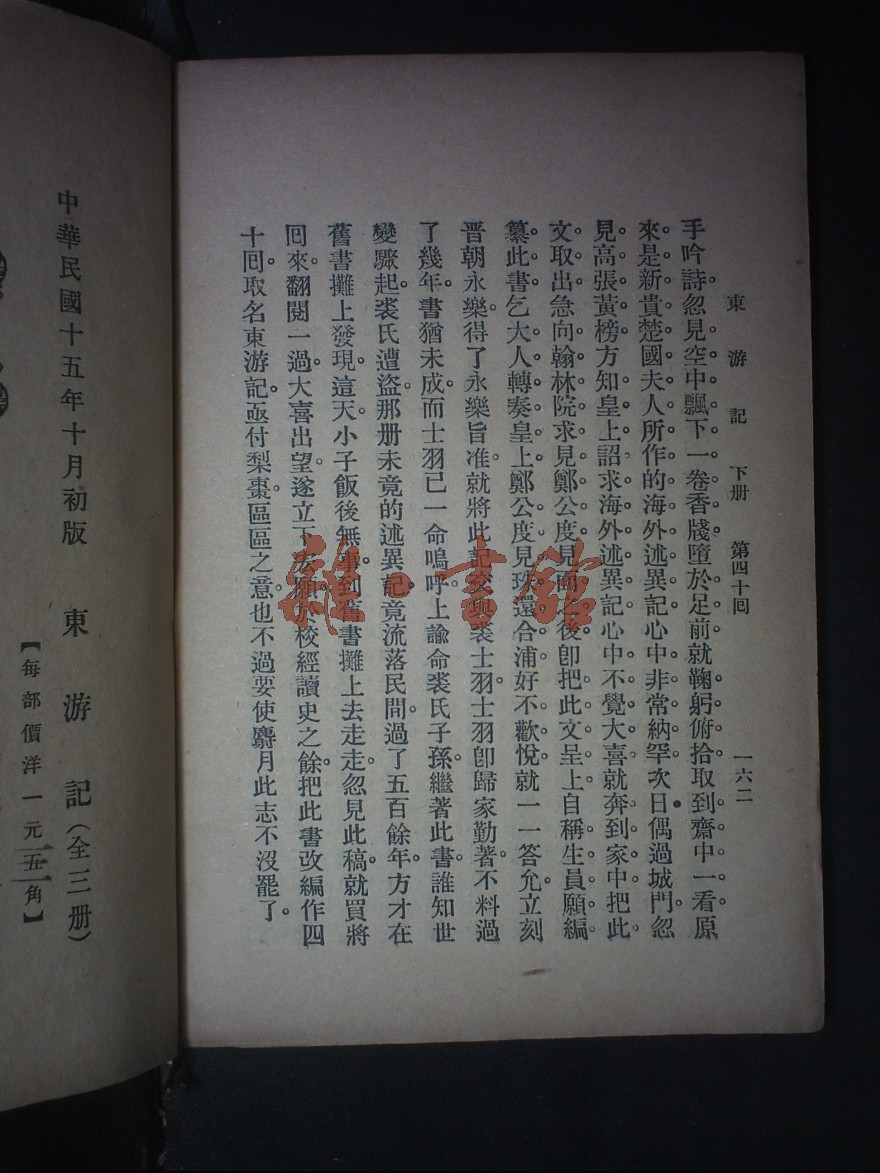 東游記 下册 第四十囘 一六二
手吟詩。忽見空中飄下一卷香牋。墮於足前。就鞠躬俯拾。取到齋中一看。原
來是新貴楚國夫人所作的海外述異記。心中非常納罕。次日。偶過城門。忽
見高張黃榜。方知皇上詔求海外述異記。心中不覺大喜。就奔到家中。把此
文取出。急向翰林院求見鄭公度。見面之後。卽把此文呈上。自稱生員願編
纂此書。乞大人轉奏皇上。鄭公度見珠還合浦。好不歡悅。就一一答允。立刻
晋朝永樂。得了永樂旨准。就將此記交與裘士羽。士羽卽歸家勤著。不料過
了幾年。書猶未成。而士羽已一命嗚呼。上諭命裘氏子孫繼著此書。誰知世
變驟起。裘氏遭盜。那册未竟的述異記。竟流落民間。過了五百餘年。方才在
舊書攤上發現。這天。小子飯後無事。到舊書攤上去走走。忽見此稿。就買將
囘來。翻閱一過。大喜出望。遂立下宏願。於校經讀史之餘。把此書改編作四
十囘。取名東游記。亟付梨棗。區區之意。也不過要使麝月此志不沒罷了。
中華民國十五年十月初版 東游記（全三册）
【每部價洋一元五角】